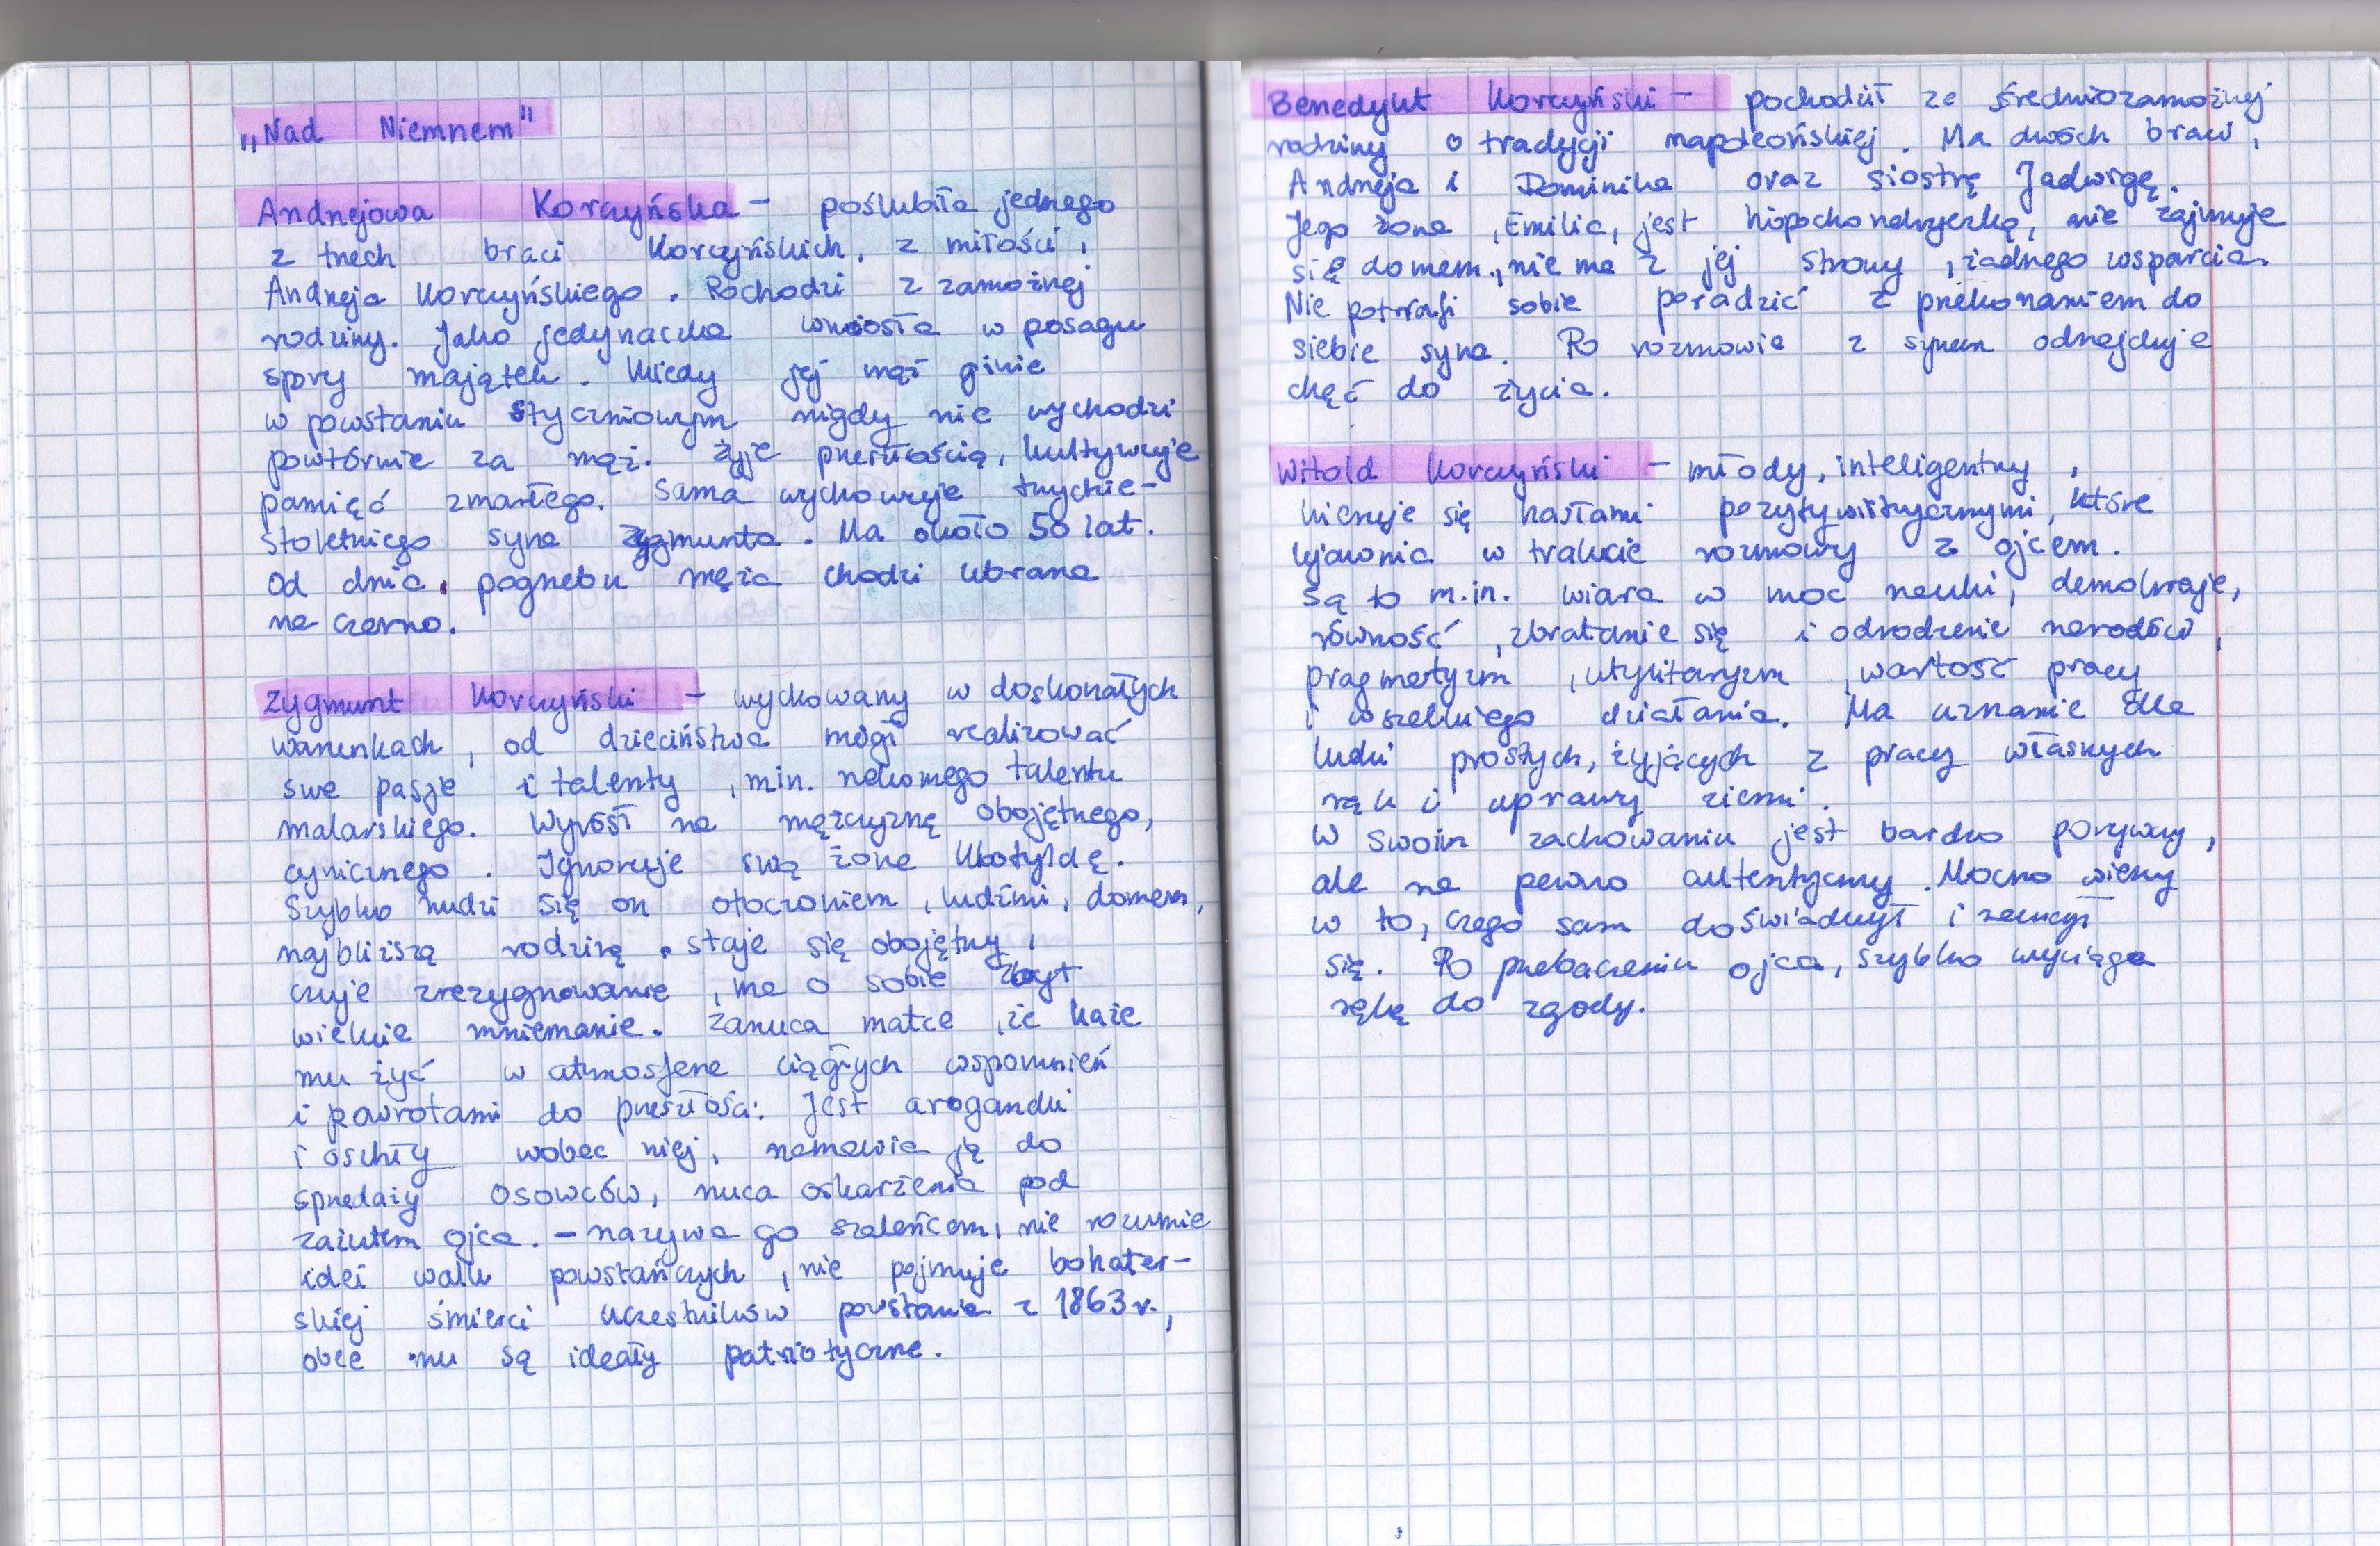 „Nad Niemnem"
Andrzejowa Korczyńska – poślubiła jednego
z trzech braci Korczyńskich, z miłości,
Andrzeja Korczyńskiego. Pochodzi z zamożnej
rodziny. Jako jedynaczka wniosła w posagu
spory majątek. Kiedy jej mąż ginie
w powstaniu styczniowym nigdy nie wychodzi
powtórnie za mąż. Żyje przeszłością, kultywuje
pamięć zmarłego. Sama wychowuje trzydzie-
stoletniego syna Zygmunta. Ma około 50 lat.
Od dnia pogrzebu męża chodzi ubrana
na czarno.
Zygmunt Korczyński – wychowany w doskonałych
warunkach, od dzieciństwa mógł realizować
swe pasje i talenty, min. rzekomego talentu
malarskiego. Wyrósł na mężczyznę obojętnego,
cynicznego. Ignoruje swą żonę Klotyldę.
Szybko nudzi się on otoczeniem, ludźmi, domem,
najbliższą rodziną. staje się obojętny,
czuje zrezygnowanie, ma o sobie zbyt
wielkie mniemanie. Zarzuca matce, że każe
mu żyć w atmosferze ciągłych wspomnień
i powrotami do przeszłości. Jest arogancki
i oschły wobec niej, namawia ją do
sprzedaży Osowców, rzuca oskarżenia pod
zarzutem ojca. – nazywa go szaleńcem, nie rozumie
idei walk powstańczych, nie pojmuje bohater-
skiej śmierci uczestników powstania z 1863 r.,
obce mu są ideały patriotyczne.
Benedykt Korczyński – pochodził ze średniozamożnej
rodziny o tradycji napoleońskiej. Ma dwóch braci,
Andrzeja i Dominika oraz siostrę Jadwigę.
Jego żona, Emilia, jest hipochondryczką, nie zajmuje
się domem, nie ma z jej strony, żadnego wsparcia.
Nie potrafi sobie poradzić z przekonaniem do
siebie syna. Po rozmowie z synem odnajduje
chęć do życia.
Witold Korczyński – młody, inteligentny,
kieruje się hasłami pozytywistycznymi, które
ujawnia w trakcie rozmowy z ojcem.
Są to m.in. wiara w moc nauki, demokracje,
równość, zbratanie się i odrodzenie narodów,
pragmatyzm, utylitaryzm, wartość pracy
i wszelkiego działania. Ma uznanie dla
ludzi prostych, żyjących z pracy własnych
rąk i uprawy ziemi.
W swoim zachowaniu jest bardzo porywczy,
ale na pewno autentyczny. Mocno wierzy
w to, czego sam doświadczył i nauczył
się. Po przebaczeniu ojca, szybko wyciąga
rękę do zgody.